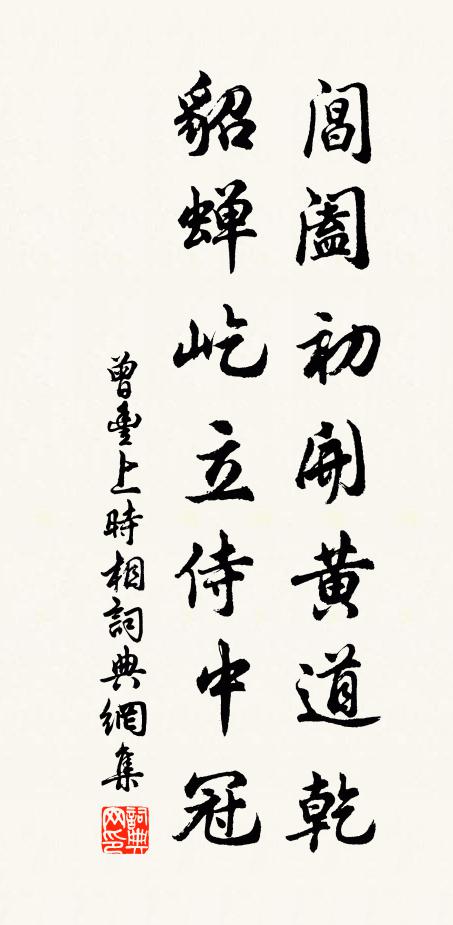 閶闔初開黃道乾
貂蟬屹立侍中冠
曾豐上時相詞典網集
詞典网印